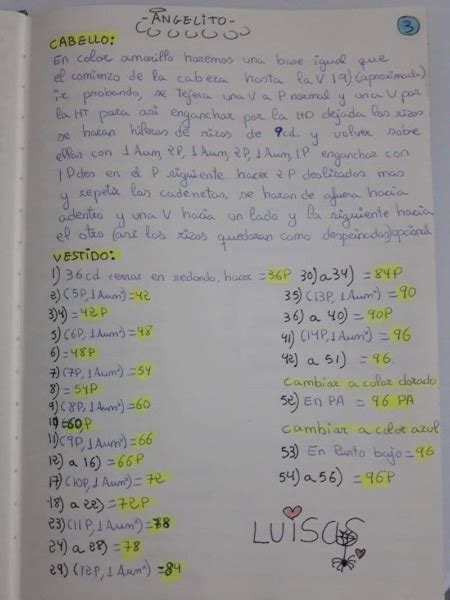 -ANGELITO-
3
CABELLO:
En color amarillo haremos una base igual que
el comienzo de la cabeza hasta la V 19) (aproximada)
ir probando, se tejera una V a P normal y una V por
la HT para asi enganchar por la HD dejada los rizos
se haran hileras de rizos de 9cd. y volver sobre
ellas con 1 Aum, 2P, 1 Aum, 2P, 1 Aum, 1P enganchar con
1 P des en el P siguiente hacer 2P deslizados mas
y repetir las cadenetas, se haran de afuera hacia
adentro y una V hacia un lado y la siguiente hacia
el otro (asi los rizos quedaran como despeinados) opcional
VESTIDO:
1) 36 cd cerrar en redondo, hacer = 36P
2) (5P, 1 Aum²) = 42
3)4) = 42P
5) (6P, 1 Aum²) = 48
6) = 48P
7) (7P, 1 Aum²) = 54
8) = 54P
9) (8P, 1 Aum²) = 60
10 = 60P
11) (9P, 1 Aum²) = 66
12) a 16) = 66P
17) (10P, 1 Aum²) = 72
18) a 22) = 72P
23) (11P, 1 Aum²) = 78
24) a 28) = 78
29) (12P, 1 Aum²) = 84
30) a 34) = 84P
35) (13P, 1 Aum²) = 90
36) a 40) = 90P
41) (14P, 1 Aum²) = 96
42) a 51) = 96
Cambiar a color dorado
52) En PA = 96 PA
Cambiar a color azul
53) En Punto bajo = 96
54) a 56) = 96P
LUISCAS